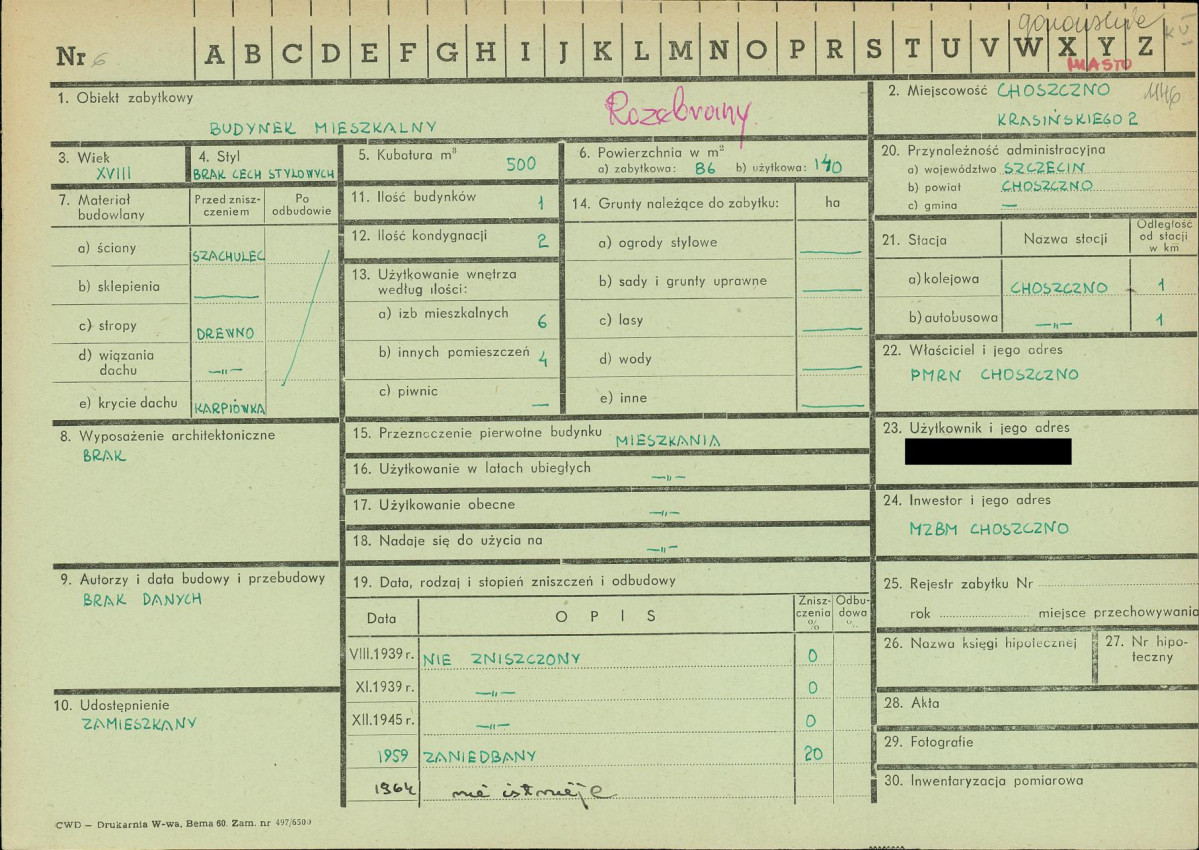 gorowskie
Nr 6 A B C D E F G H I J K L M N O P R S T U V W X Y Z
MIASTO
1. Obiekt zabytkowy
BUDYNEK MIESZKALNY
Rozebrany
2. Miejscowość CHOSZCZNO
KRASIŃSKIEGO 2
3. Wiek
XVIII
4. Styl
BRAK CECH STYLOWYCH
5. Kubatura m³ 500
6. Powierzchnia w m²
a) zabytkowa: 86 b) użytkowa: 140
7. Materiał budowlany
Przed zniszczeniem
Po odbudowie
a) ściany SZACHULEC
b) sklepienia —
c) stropy DREWNO
d) wiązania dachu —„—
e) krycie dachu KARPIÓWKA
8. Wyposażenie architektoniczne
BRAK
9. Autorzy i data budowy i przebudowy
BRAK DANYCH
10. Udostępnienie
ZAMIESZKANY
11. Ilość budynków 1
12. Ilość kondygnacji 2
13. Użytkowanie wnętrza
według ilości:
a) izb mieszkalnych 6
b) innych pomieszczeń 4
c) piwnic —
14. Grunty należące do zabytku: ha
a) ogrody stylowe —
b) sady i grunty uprawne —
c) lasy —
d) wody —
e) inne —
15. Przeznaczenie pierwotne budynku MIESZKANIA
16. Użytkowanie w latach ubiegłych —„—
17. Użytkowanie obecne —„—
18. Nadaje się do użycia na —„—
19. Data, rodzaj i stopień zniszczeń i odbudowy
Data OPIS Zniszczenia % Odbudowa %
VIII.1939 r. NIE ZNISZCZONY 0
XI.1939 r. —„— 0
XII.1945 r. —„— 0
1959 ZANIEDBANY 20
1964 nie istnieje
20. Przynależność administracyjna
a) województwo SZCZECIN
b) powiat CHOSZCZNO
c) gmina —
21. Stacja Nazwa stacji Odległość od stacji w km
a) kolejowa CHOSZCZNO 1
b) autobusowa —„— 1
22. Właściciel i jego adres
PMRN CHOSZCZNO
23. Użytkownik i jego adres
24. Inwestor i jego adres
MZBM CHOSZCZNO
25. Rejestr zabytku Nr
rok miejsce przechowywania
26. Nazwa księgi hipotecznej
27. Nr hipoteczny
28. Akta
29. Fotografie
30. Inwentaryzacja pomiarowa
CWD — Drukarnia W-wa, Bema 60. Zam. nr 497/6500